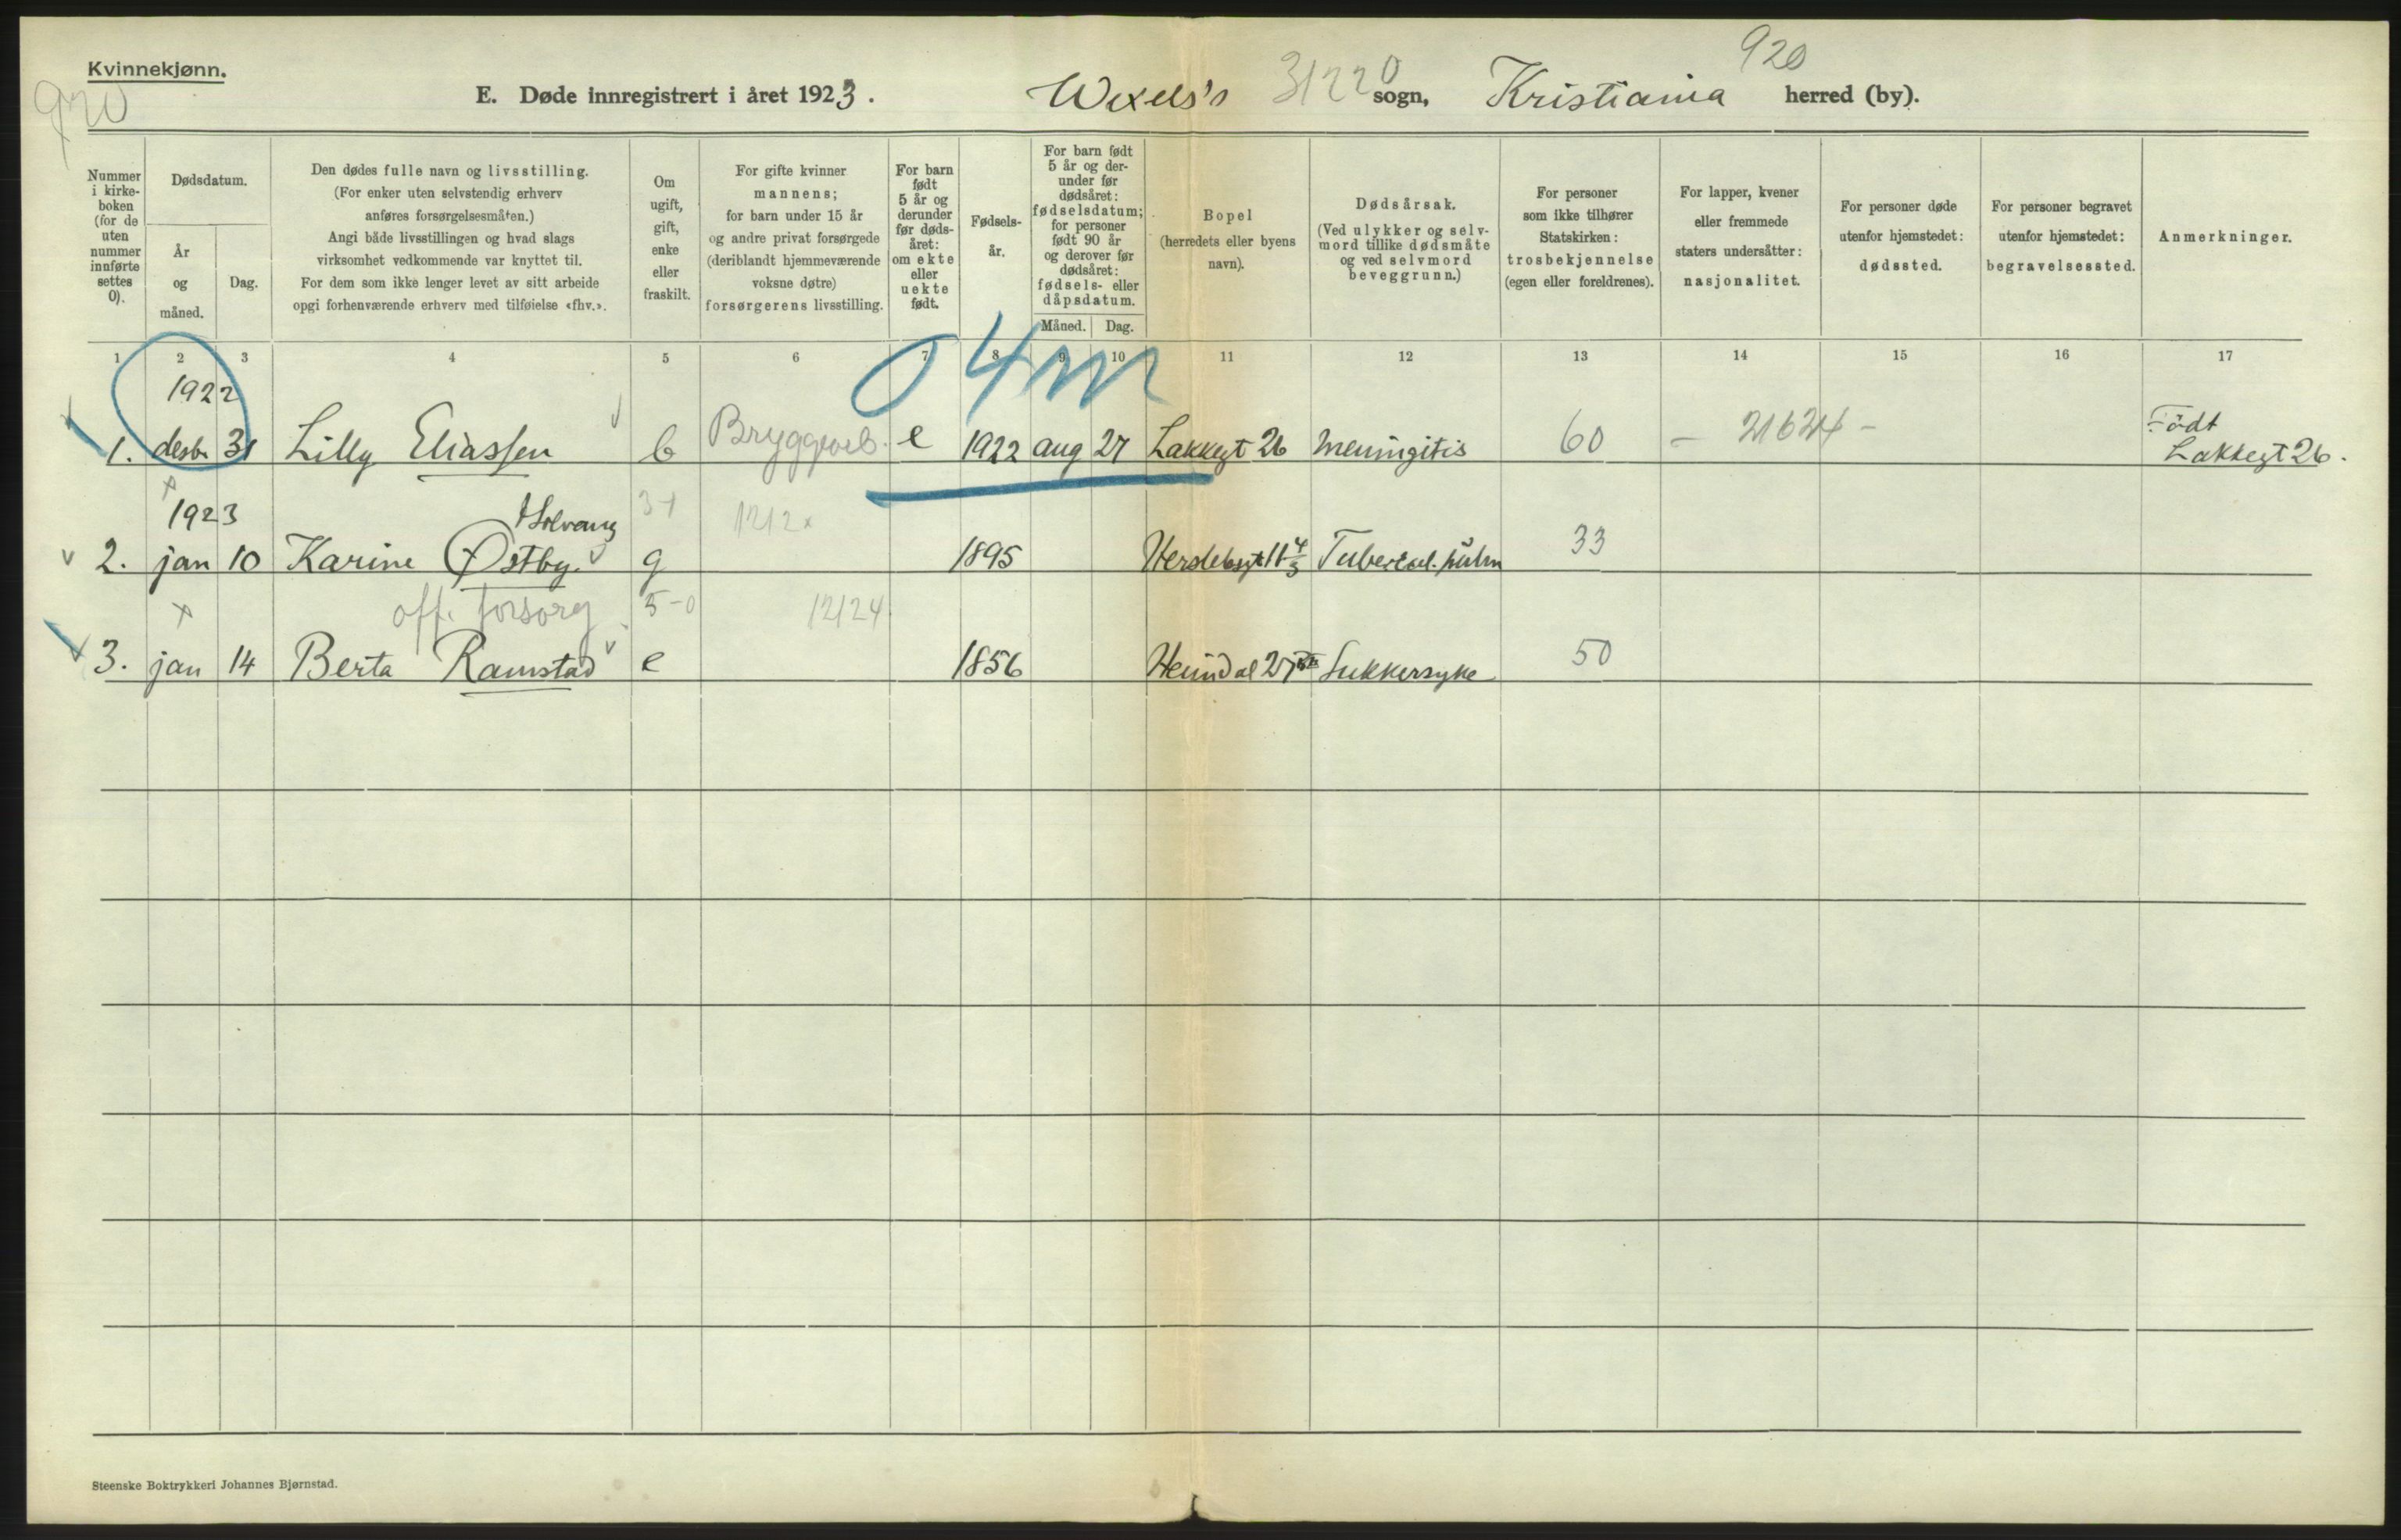 Kvinnekjønn.
920
E. Døde innregistrert i året 1923. Wexels's 3122 0 sogn, Kristiania 920 herred (by).
Nummer i kirke-boken (for de uten nummer innførte settes 0).
Dødsdatum.
År og måned.
Dag.
Den dødes fulle navn og livsstilling.
(For enker uten selvstendig erhverv
anføres forsørgelsesmåten.)
Angi både livsstillingen og hvad slags
virksomhet vedkommende var knyttet til.
For dem som ikke lenger levet av sitt arbeide
opgi forhenværende erhverv med tilføielse «fhv.».
Om ugift, gift, enke eller fraskilt.
For gifte kvinner
mannens;
for barn under 15 år
og andre privat forsørgede
(deriblandt hjemmeværende
voksne døtre)
forsørgerens livsstilling.
For barn født 5 år og derunder før døds-året: om ekte eller uekte født.
Fødsels-år.
For barn født 5 år og der-under før dødsåret: fødselsdatum; for personer født 90 år og derover før dødsåret: fødsels- eller dåpsdatum.
Måned. Dag.
Bopel
(herredets eller byens
navn).
Dødsårsak.
(Ved ulykker og selv-
mord tillike dødsmåte
og ved selvmord
beveggrunn.)
For personer
som ikke tilhører
Statskirken:
trosbekjennelse
(egen eller foreldrenes).
For lapper, kvener
eller fremmede
staters undersåtter:
nasjonalitet.
For personer døde
utenfor hjemstedet:
dødssted.
For personer begravet
utenfor hjemstedet:
begravelsessted.
Anmerkninger.
1 2 3 4 5 6 7 8 9 10 11 12 13 14 15 16 17
04m
1922
1. desbr 31 Lilly Eliassen b e 1922 aug 27 Lakkegt 26 Meningitis 60 - 21624 - Födt
Lakkegt 26.
1923 Solvang 1212x
2. jan 10 Karine Østby. g 1895 Herslebsgt 11 Tubercul. pulm 33
off. forsorg 5-0 12124
3. jan 14 Berta Ramstad e 1856 Heimdal 27 Sukkersyke 50
Steenske Boktrykkeri Johannes Bjørnstad.